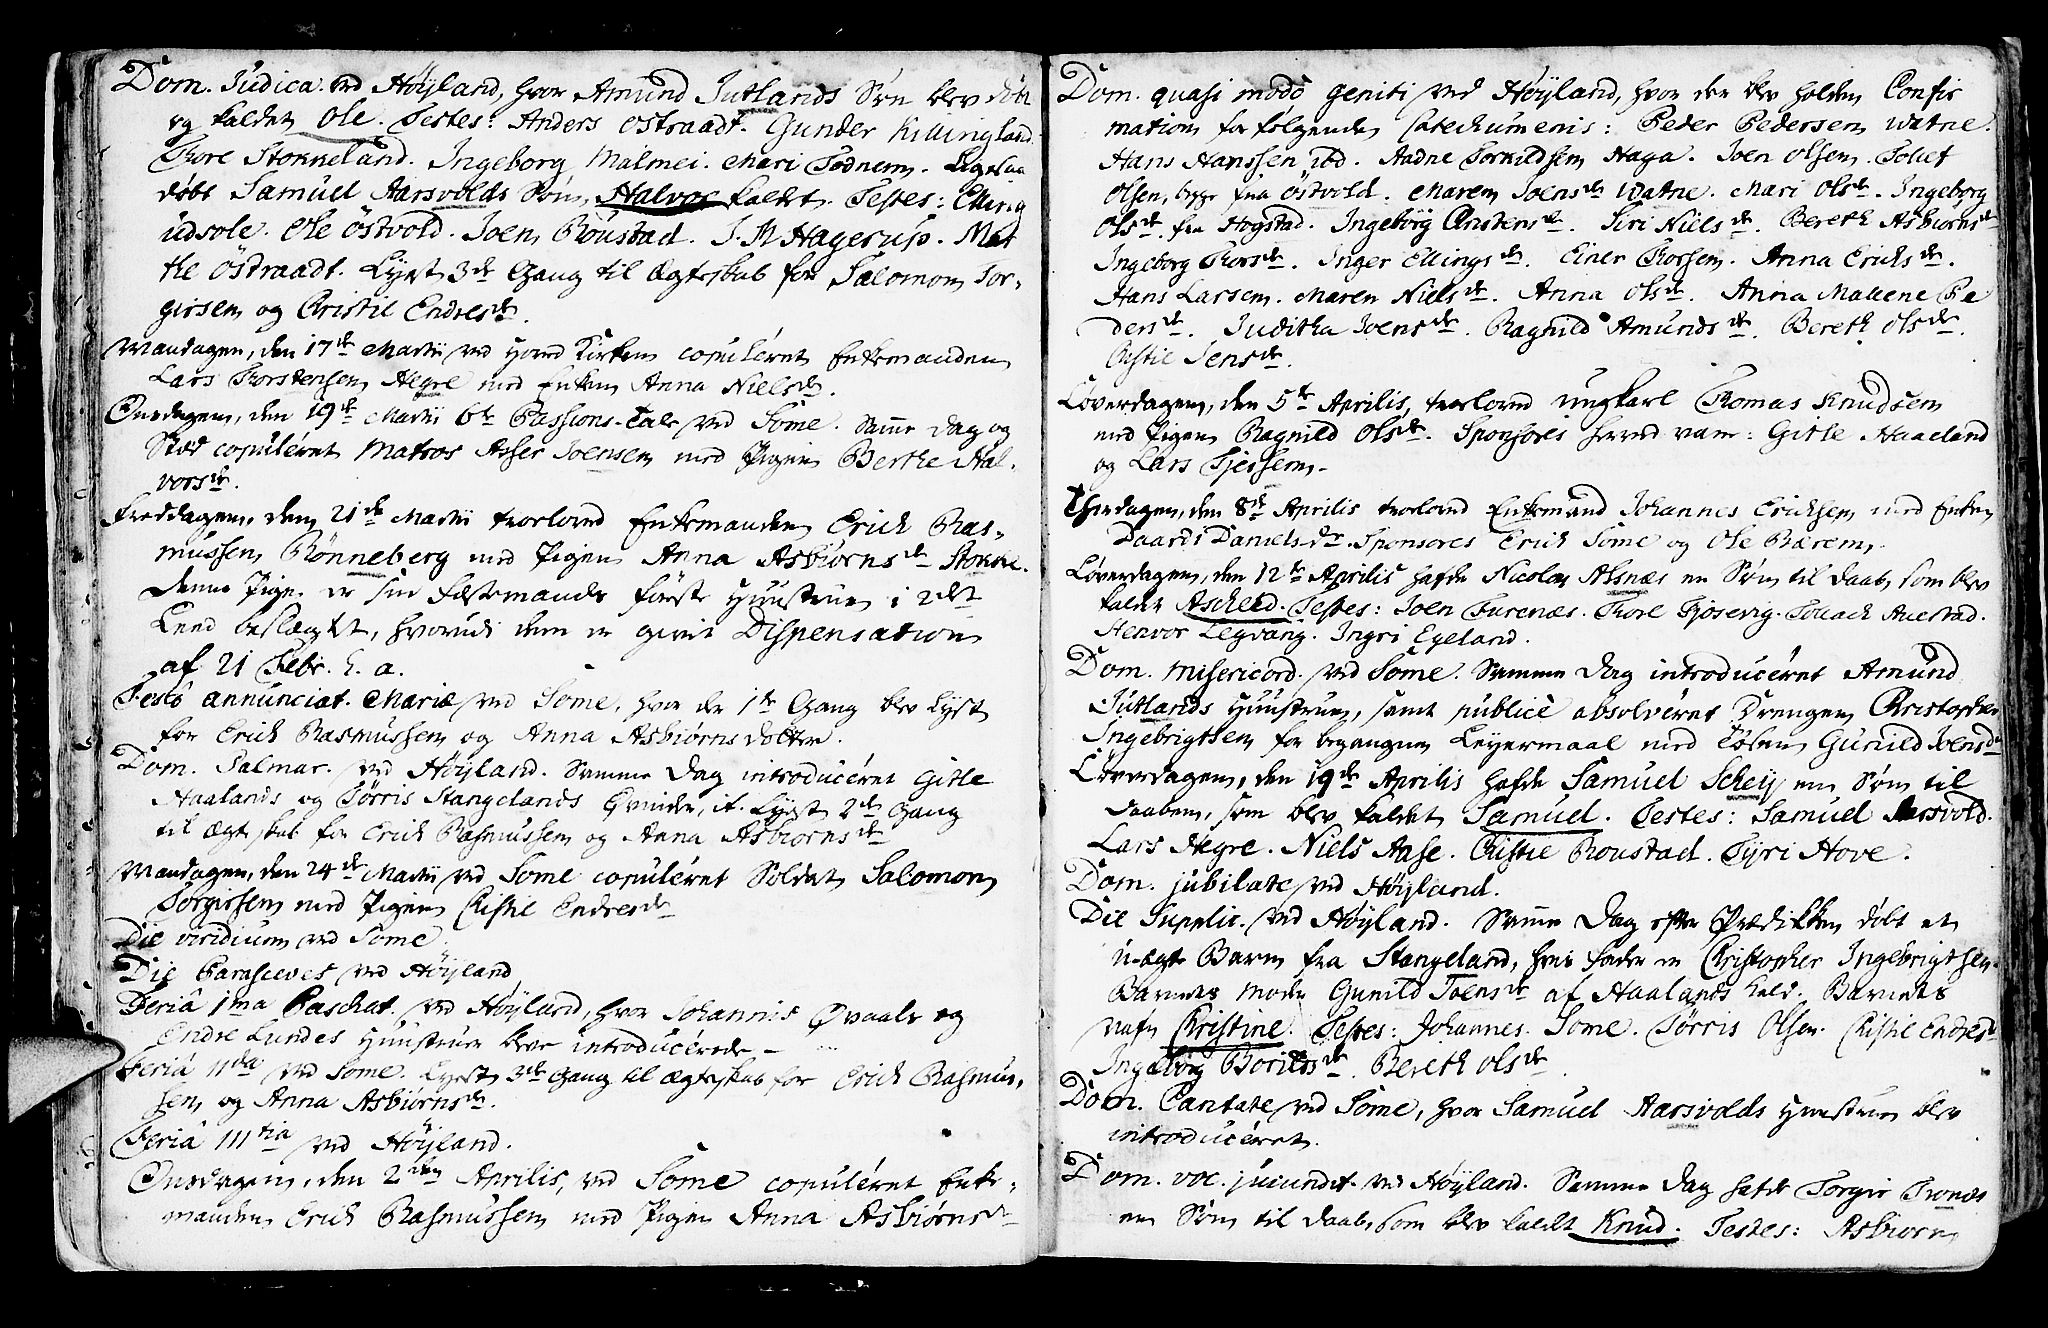 Dom. Judica ved Høyland, hvor Amund Jutlands Søn blev døbt
og kaldet Ole. Testes: Anders Østraadt. Gunder Killingland.
Thore Stokneland. Ingeborg Malmei. Mari Todnem. Ligesaa
døbt Samuel Aarsvolds Søn, Halvor kaldet. Testes: Elling
udsole. Ole Østvold. Joen Roustad. J. M Hagerup. Met
the Østraadt. Lyst 3de Gang til Ægteskab for Salomon Tor-
girsen og Cristil Endresdr.
Mandagen, den 17de Martii ved Hovd Kirken copuleret Enkemanden
Lars Thorstensen Hegre med Enken Anna Nielsdr.
Onsdagen, den 19de Martii 6te Passions-Tale ved Some. Samme Dag og
Sted copuleret Matros Asser Joensen med Pigen Berthe Hal-
vorsdr.
Freddagen, den 21de Martii trorloved Enkemanden Erich Ras-
mussen Rønneberg med Pigen Anna Asbiørnsdr Stokke.
Denne Pige er sin Festemands første Hustrue i 2det
Leed beslægtet, hvorudi dem er given Dispensation
af 21 Febr. h. a.
Festo annunciat. Mariæ ved Some, hvor der 1te Gang blev lyst
for Erich Rasmussen og Anna Asbiørns dotter.
Dom. Palmar. ved Høyland. Samme Dag introduceret Gitle
Haalands og Tørris Stangelands Qvinder, it. Lyst 2de Gang
til Ægteskab for Erich Rasmussen og Anna Asbiørnsdr
Mandagen, den 24de Martii ved Some copuleret Soldat Salomon
Torgirsen med Pigen Cristil Endresdr
Die viridium ved Some
Die Parasceves ved Høyland
Feriâ 1ma Paschat. ved Høyland, hvor Johannis Qvaals og
Endre Lundes Hustruer bleve introducerede -
Feriâ IIda ved Some. Lyst 3de Gang til Ægteskab for Erich Rasmus-
sen og Anna Asbiørnsdr.
Feriâ IIItia ved Høyland.
Onsdagen, den 2den Aprilis, ved Some copuleret Enke-
manden Erich Rasmussen med Pigen Anna Asbiørnsdr
Dom. quasi modo geniti ved Høyland, hvor der blev holden Confir
mation for følgende Catechumenis: Peder Pedersen Watne.
Hans Hanssen ibd. Aadne Torkildsen Haga. Joen Olsen. Tollef
Olsen, begge fra Østvold. Maren Joensdr Watne. Mari Olsdr. Ingeborg
Olsdr. fra Hogstad. Ingeborg Christensdr. Siri Nielsdr. Bereth Asbiørnsdr
Ingeborg Thorsdr. Inger Ellingsdr. Einer Thorsen. Anna Erichsdr.
Hans Larsen. Maren Nielsdr. Anna Olsdr. Anna Malene Pe
dersdr. Juditha Joensdr. Ragnild Amundsdr. Bereth Olsdr.
Cistil Jensdr.
Løverdagen, den 5te Aprilis, trorloved ungkarl Thomas Knudsen
med Pigen Ragnild Olsdr. Sponsores herved vare: Gitle Haaland
og Lars Tjessem.
Thirsdagen, den 8de Aprilis trorloved Enkemand Johannes Erichsen med Enken
Daardi Daniels dr. Sponsores Erich Some og Ole Bærem.
Løverdagen, den 12te Aprilis hafde Nicolay Alsnæs en Søn til Daab, som blev
kaldet Ascheld. Testes: Joen Furenæs. Thore Tjosevig. Tollach Auestad.
Henvor Legvang. Ingri Egeland.
Dom. Misericord. ved Some. Samme Dag introduceret Amund
Jutlands Hustrue, samt publicè absolveret Drengen Christopher
Ingebrigtsen for begangen Leyermaal med Tøsen Gunild Joensdr
Løverdagen, den 19de Aprilis hafde Samuel Scheij en Søn til
Daaben, som blev kaldet Samuel. Testes: Samuel Aarsvold.
Lars Hegre. Niels Aase. Cistil Roustad. Tyri Hove.
Dom. jubilate ved Høyland.
Die Supplic. ved Høyland. Samme Dag efter Prædikken døbt et
uægte Barn fra Stangeland, hvis Fader er Christopher Ingebrigtsen.
Barnets Moder Gunild Joensdr af Haalands hald. Barnets
Nafn Christine. Testes: Johannes Some. Tørris Olsen. Cistil Endresdr
Ingeborg Borildsdr. Bereth Olsdr.
Dom. Cantate ved Some, hvor Samuel Aarsvolds Hustrue blev
introduceret.
Dom. voc. jucundit. ved Høyland. Samme Dag hafde Torgir Tronæs
en Søn til Daab, som blev kaldet Knud. Testes: Asbiørn